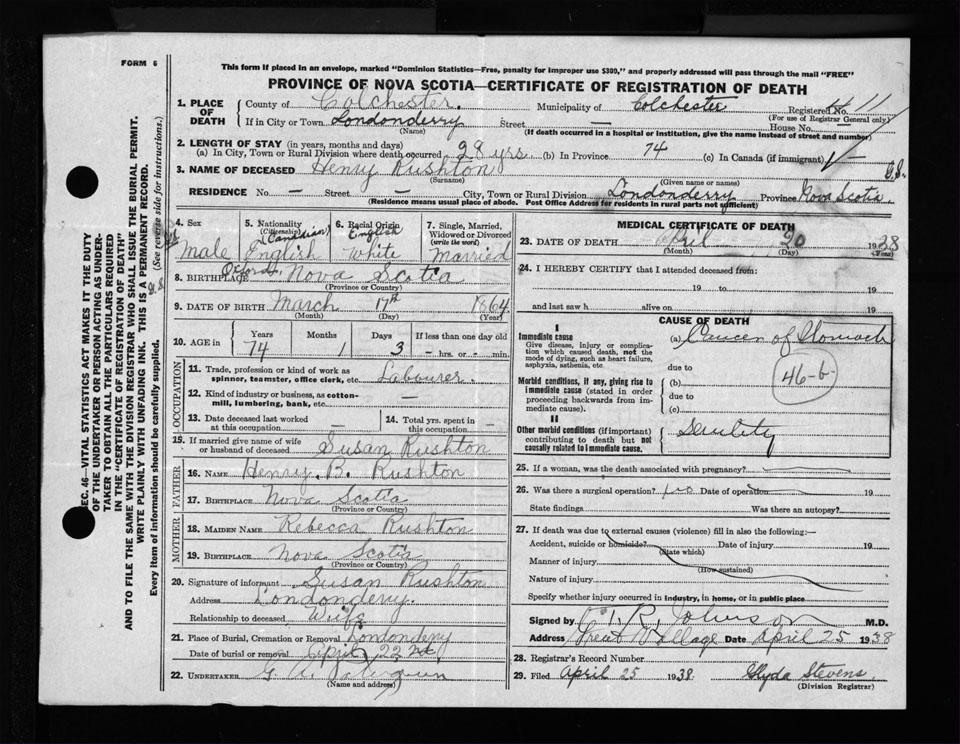 FORM 6
This form if placed in an envelope, marked "Dominion Statistics—Free, penalty for improper use $300," and properly addressed will pass through the mail "FREE"
PROVINCE OF NOVA SCOTIA—CERTIFICATE OF REGISTRATION OF DEATH
1. PLACE OF DEATH
County of Colchester. Municipality of Colchester Registered No. 11
(For use of Registrar General only)
If in City or Town Londonderry Street — House No. —
(Name) (If death occurred in a hospital or institution, give the name instead of street and number)
2. LENGTH OF STAY (in years, months and days)
(a) In City, Town or Rural Division where death occurred 28 yrs (b) In Province 74 (c) In Canada (if immigrant) —
3. NAME OF DECEASED Henry Rushton
(Surname) (Given name or names)
RESIDENCE No. — Street — City, Town or Rural Division Londonderry Province Nova Scotia.
(Residence means usual place of abode. Post Office Address for residents in rural parts not sufficient)
4. Sex
Male
5. Nationality
(Citizenship)
(Canadian)
English
6. Racial Origin
English
White
7. Single, Married, Widowed or Divorced
(write the word)
Married
8. BIRTHPLACE Oxford Nova Scotia
(Province or Country)
9. DATE OF BIRTH March 17th 1864
(Month) (Day) (Year)
10. AGE in
Years Months Days If less than one day old
74 1 3 – hrs. or – min.
OCCUPATION
11. Trade, profession or kind of work as spinner, teamster, office clerk, etc. Labourer.
12. Kind of industry or business, as cotton-mill, lumbering, bank, etc. —
13. Date deceased last worked at this occupation —
14. Total yrs. spent in this occupation —
15. If married give name of wife or husband of deceased Susan Rushton
FATHER
16. NAME Henry. B. Rushton
17. BIRTHPLACE Nova Scotia
MOTHER
18. MAIDEN NAME Rebecca Rushton
19. BIRTHPLACE Nova Scotia
(Province or Country)
20. Signature of informant Susan Rushton
Address Londonderry.
Relationship to deceased Wife
21. Place of Burial, Cremation or Removal Londonderry
Date of burial or removal April 22nd
22. UNDERTAKER G. A.
(Name and address)
MEDICAL CERTIFICATE OF DEATH
23. DATE OF DEATH April 20 1938
(Month) (Day) (Year)
24. I HEREBY CERTIFY that I attended deceased from:
19 to 19
and last saw h alive on 19
CAUSE OF DEATH
I
Immediate cause
Give disease, injury or complication which caused death, not the mode of dying, such as heart failure, asphyxia, asthenia, etc.
(a) Cancer of Stomach
due to
46-b-
Morbid conditions, if any, giving rise to immediate cause (stated in order proceeding backwards from immediate cause).
(b)
due to
(c)
II
Other morbid conditions (if important) contributing to death but not causally related to immediate cause.
Senility
25. If a woman, was the death associated with pregnancy?
26. Was there a surgical operation? no Date of operation 19
State findings Was there an autopsy?
27. If death was due to external causes (violence) fill in also the following:—
Accident, suicide or homicide? Date of injury 19
(State which)
Manner of injury
(How sustained)
Nature of injury
Specify whether injury occurred in industry, in home, or in public place
Signed by T. R. Johnson M.D.
Address Great Village Date April 25 1938
28. Registrar's Record Number
29. Filed April 25 1938. Glyda Stevens
(Division Registrar)
SEC. 46—VITAL STATISTICS ACT MAKES IT THE DUTY
OF THE UNDERTAKER OR PERSON ACTING AS UNDER-
TAKER TO OBTAIN ALL THE PARTICULARS REQUIRED
IN THE "CERTIFICATE OF REGISTRATION OF DEATH"
AND TO FILE THE SAME WITH THE DIVISION REGISTRAR WHO SHALL ISSUE THE BURIAL PERMIT.
WRITE PLAINLY WITH UNFADING INK. THIS IS A PERMANENT RECORD.
Every item of information should be carefully supplied. (See reverse side for instructions.)